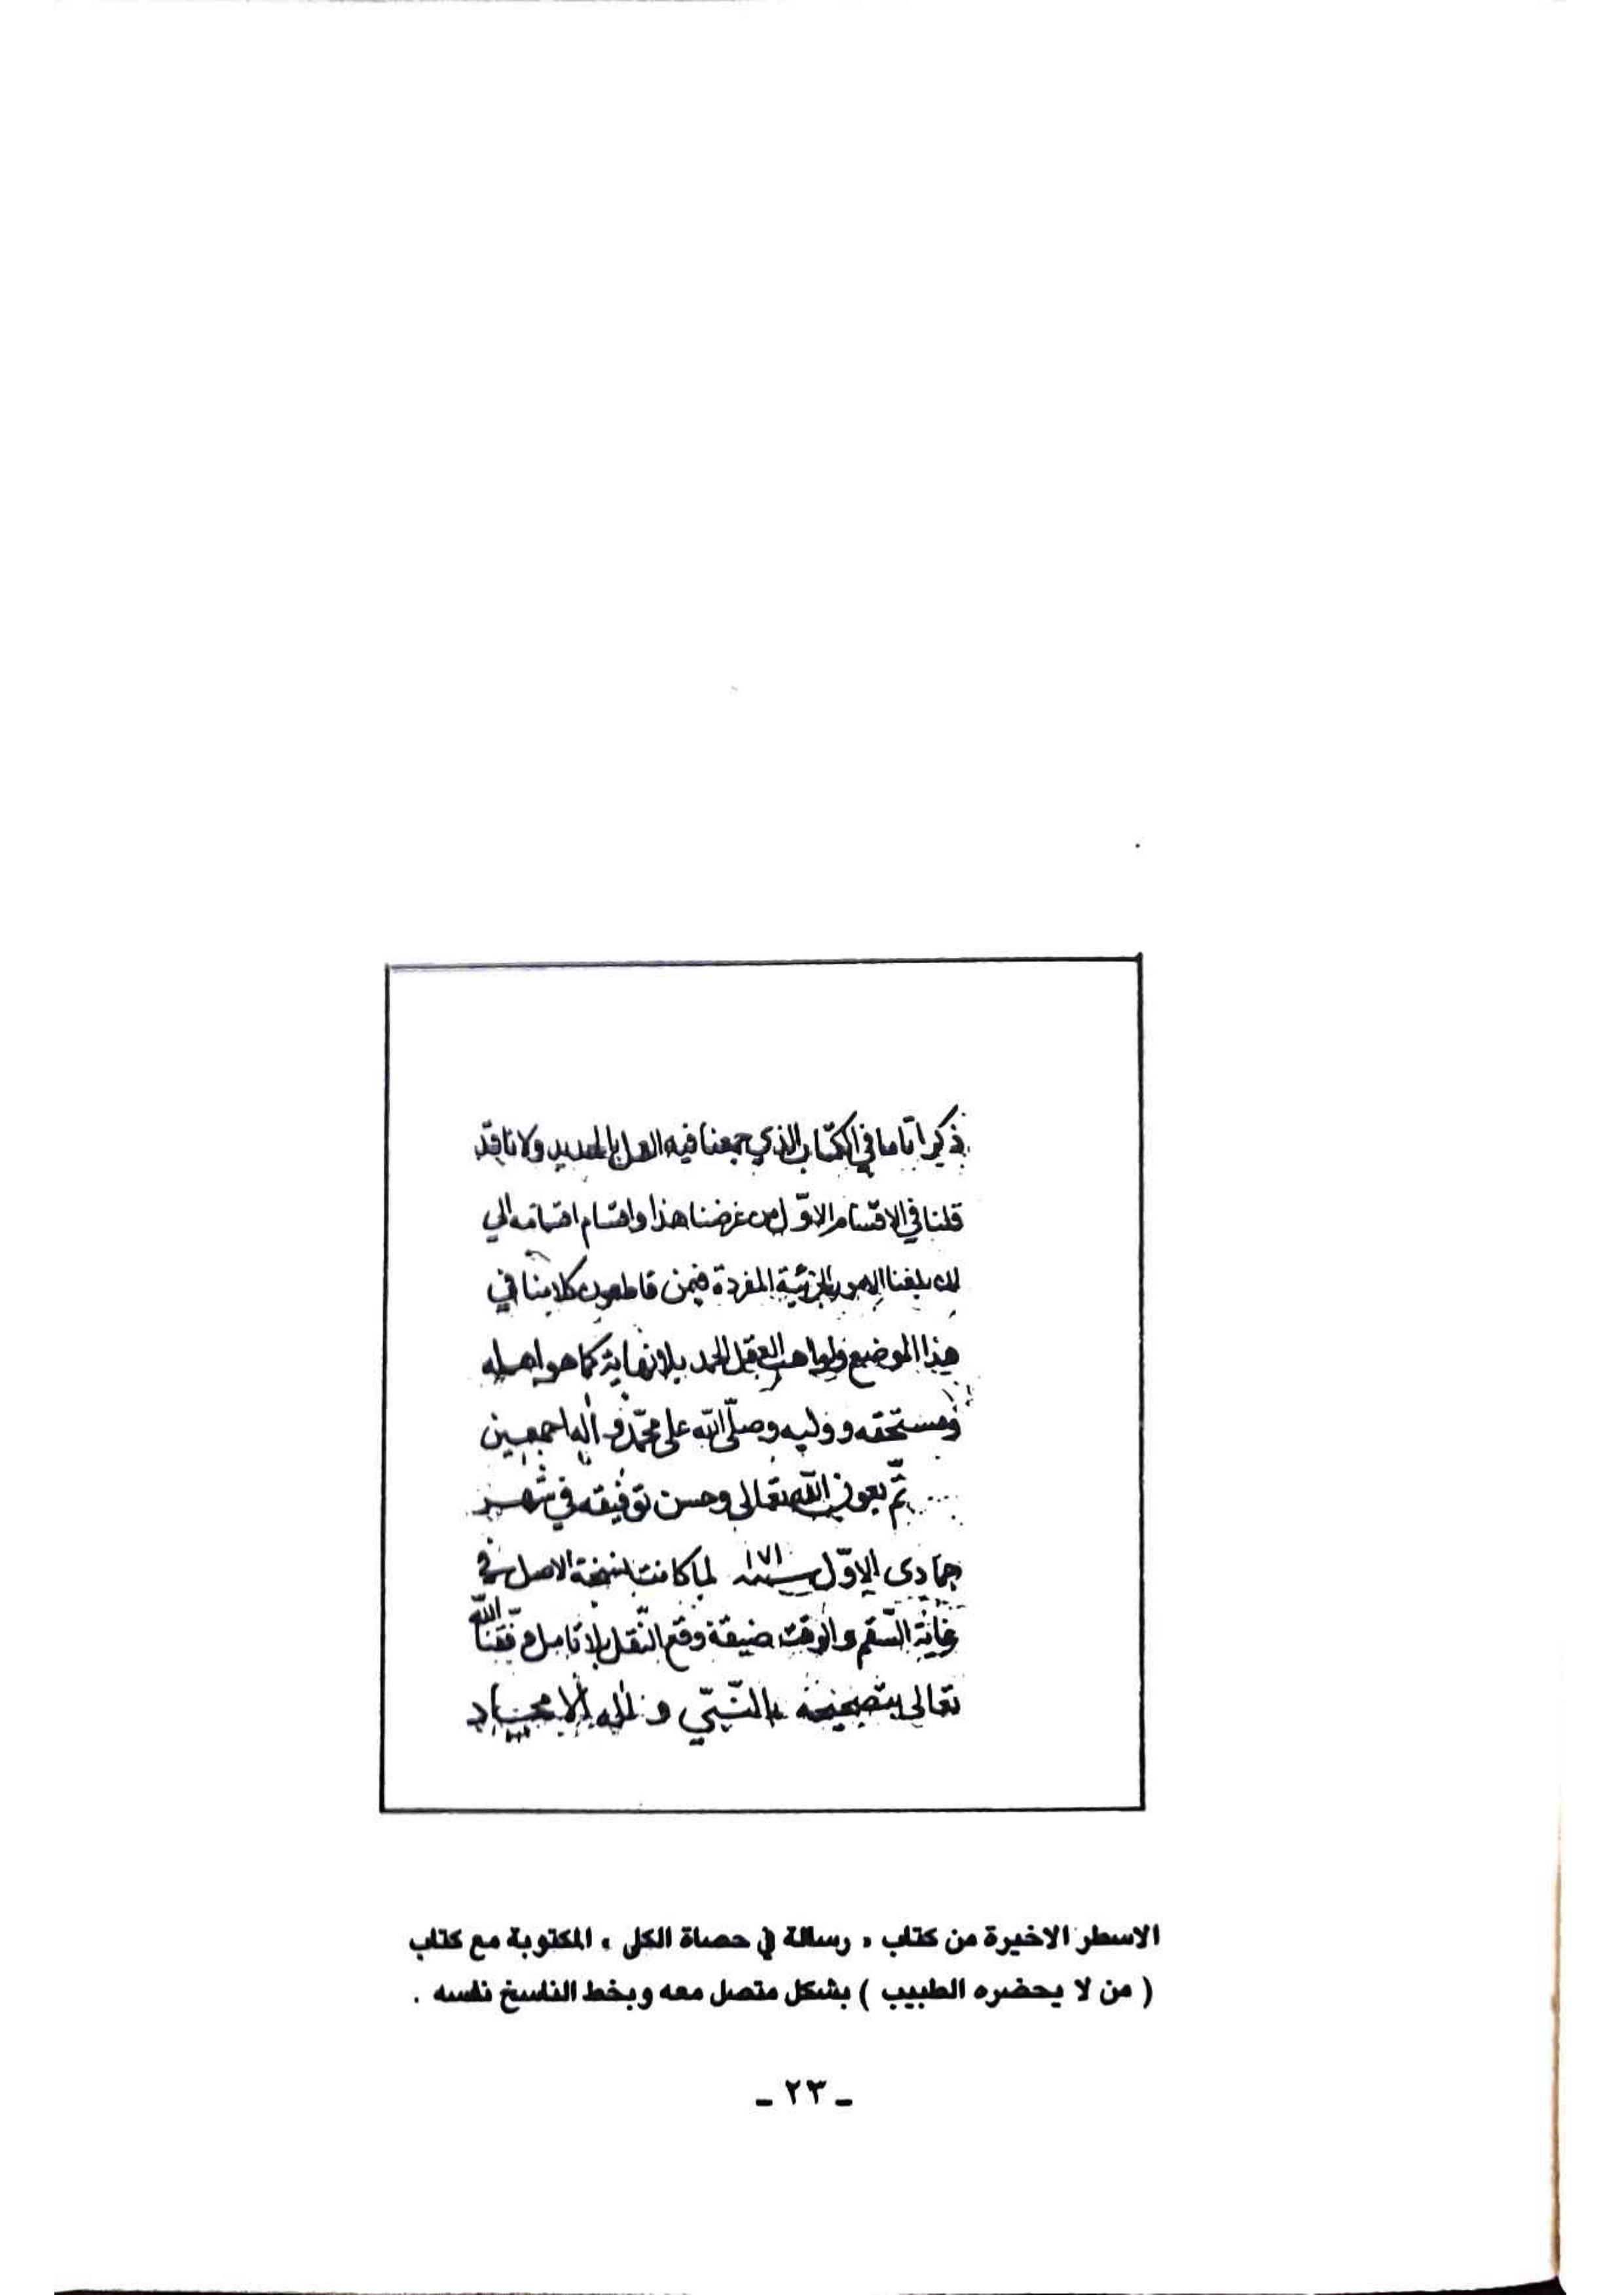 ذكرا تاما في الكتاب الذي جمعنا فيه العمل بالحديد ولانا قد
قلنا في الاقسام الاوّل من غرضنا هذا واقسام اقسامه الي
بلغنا الامور الجزئية المفردة فمن كلامنا في
هذا الموضع ولواهب العقل الحمد بلا نهاية كما هو اهله
ومستحقه ووليه وصلّى اللّه على محمّد و اله اجمعين
تمّ بعون اللّه تعالى وحسن توفيقه في شهر
جمادى الاوّل سنه ١٧١ لما كانت نسخة الاصل في
غاية السّقم و الوقت ضيقة وقع النّقل بلا تامل وفّقنا اللّه
تعالى بتصحيحه بالنّبيّ و اله الامجاد
الاسطر الاخيرة من كتاب « رسالة في حصاة الكلى » المكتوبة مع كتاب
( من لا يحضره الطبيب ) بشكل متصل معه وبخط الناسخ نفسه .
ـ ٢٣ ـ